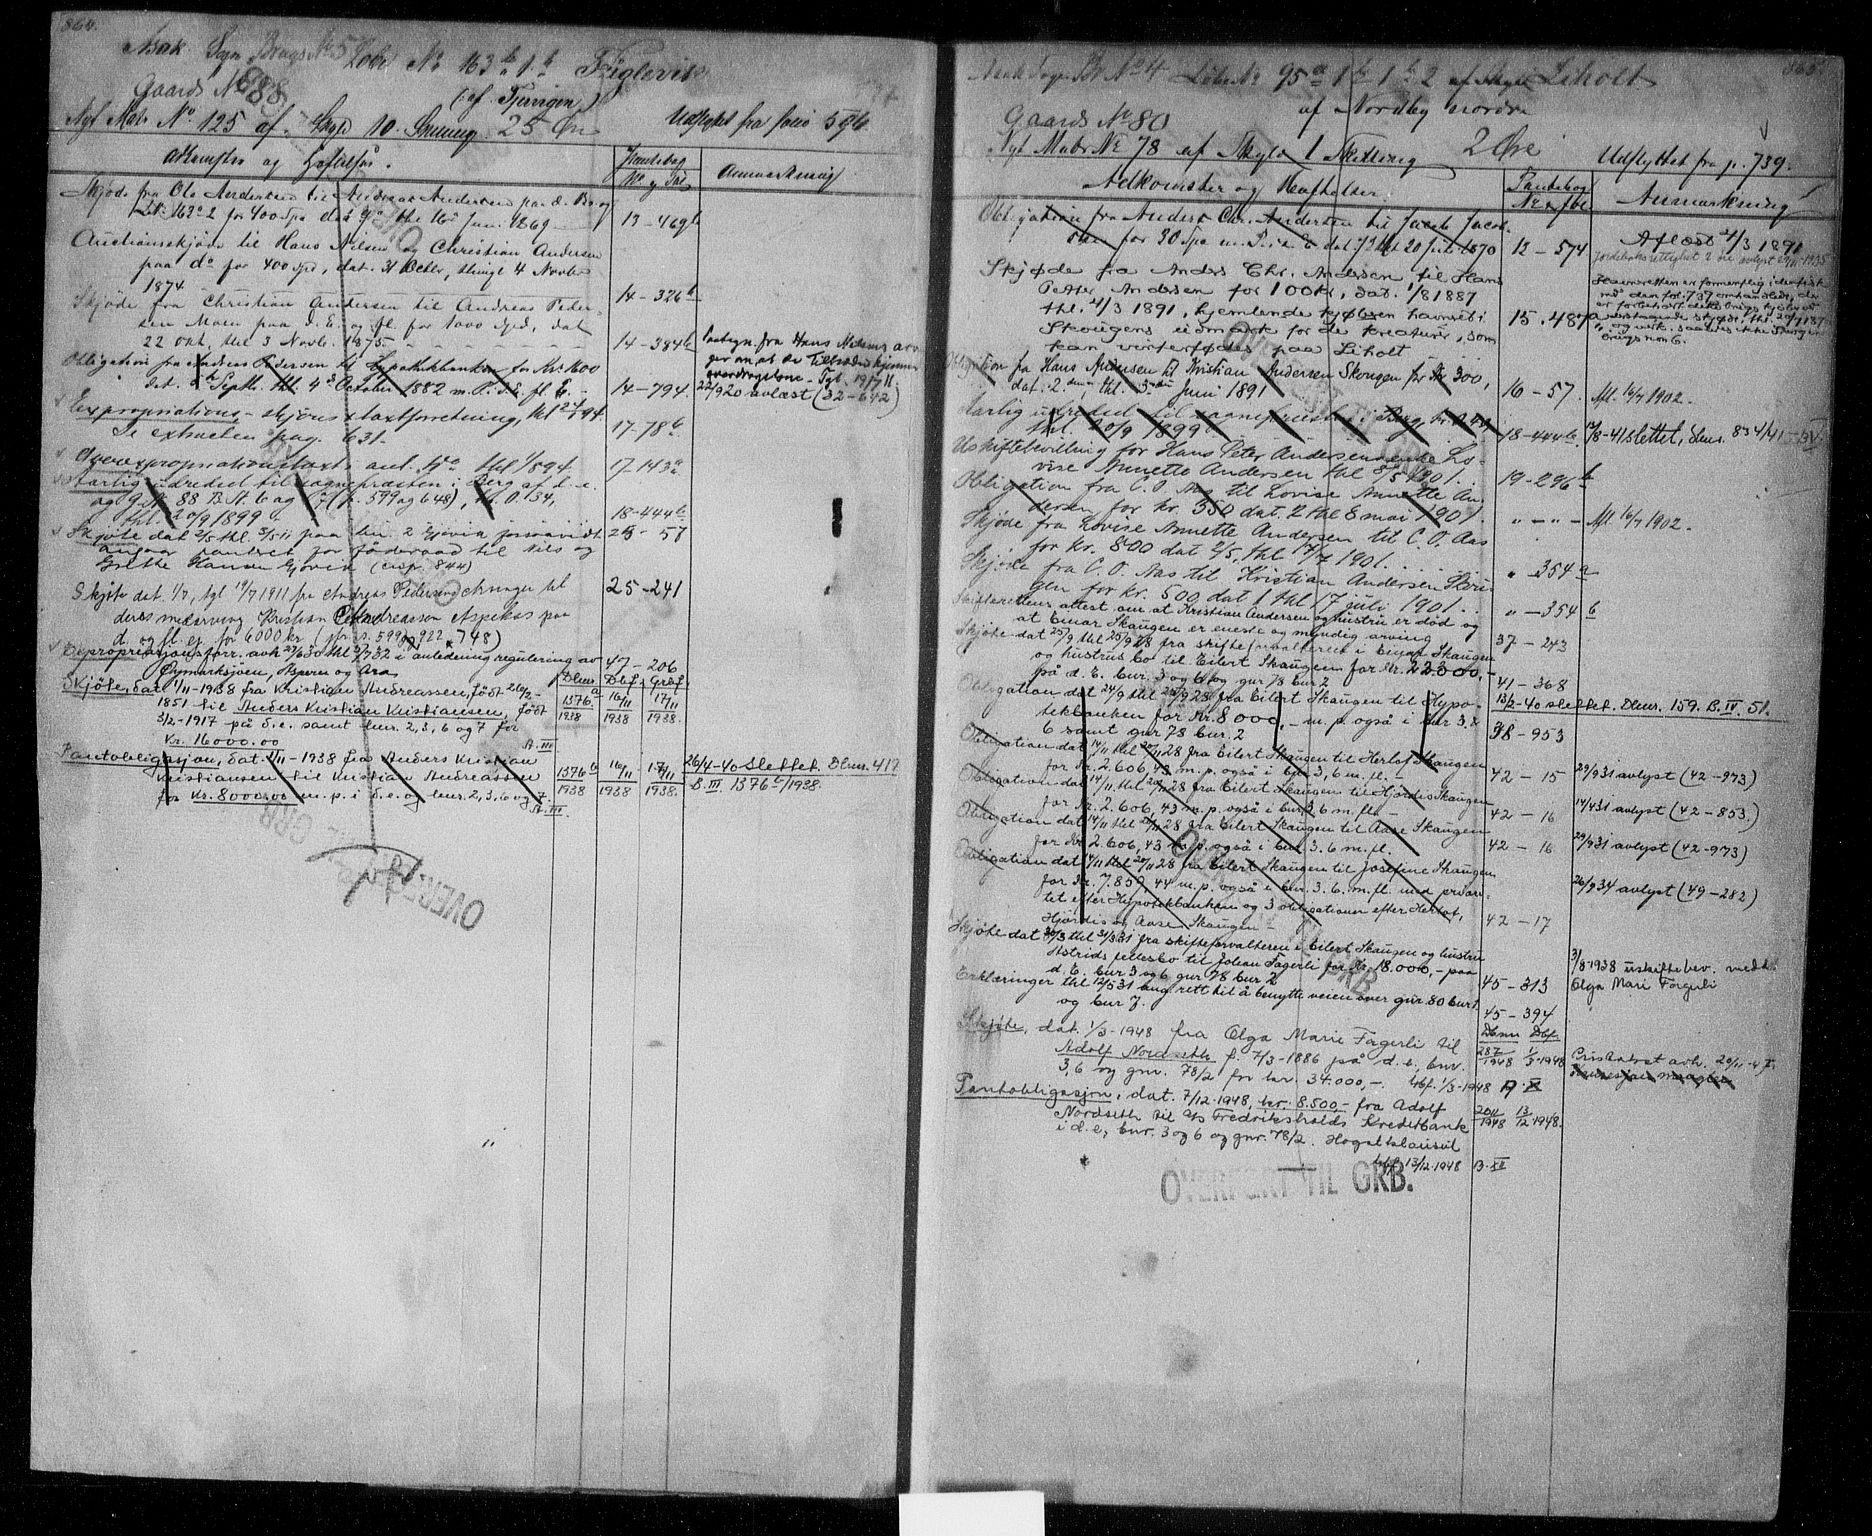 864.
Asak Sogn Brugs No 5 Løbe No 163 b 1 b Fuglevik
Gaards No 88 (af Tjervigen)
Nyt Matr No 125 af Skyld 10 Skilling 25 Øre Udflyttet fra folio 596
Adkomster og Hæftelser.
Pantebog No og Fol
Anmærkning
Skjøde fra Ole Andersen til Andreas Andersen paa d. Br og
Lb. 163 a 2 for 400 Spd dat 9de thl 16de Juni 1869 13 – 469 b
Auctionsskjøde til Hans Nilsen og Christian Andersen
paa do for 400 Spd, dat. 31 Octbr, thingl 4 Novbr
1874 14 – 326 b
Skjøde fra Christian Andersen til Andreas Peder-
sen Moen paa d. E. og fl for 1000 Spd, dat
22 Okt, thl 3 Novb. 1875. 14 – 384 b
Obligation fra Anders Pedersen til Hypothekbanken for Kr 1600
dat. Septbr. thl 4de October 1882 m. P. i d. E. fl. E. 14 – 794. 22/9 20 avlæst (32–642)
Expropriations-skjøns-taxtforretning, thl 2/4 94.
Se extracten pag. 631. 17–78 b
Overexpropriationstaxt ant. do thl 1/5 94. 17–143 a
Aarlig udredsel til sognepræsten i Berg af d. e.
og g.No 88 B.N. 6 og 7 (p. 599 og 648), kr. 0.34,
thl. 20/9 1899 18–444 b
Skjøte dat 2/5 thl 3/5 11 paa bn. 2 Gjøvik forsaavidt 25 – 57
angaar pantret for föderaad til Nils og
Grethe Hansen Gjøvik (cnfr. 844)
Skjøte dat. 1/7, tgl 19/7 1911 fra Andreas Pedersens Arvinger til 25–241
deres medarving Kristian Andreassen Aspekos paa
d. og fl. ej. for 6000 kr (jfr. s. 599 og 922 748)
Expropriasjonsforr. avh 23/6 30 thl 2/7 32 i anledning regulering av
Øymarksjøen, Bøeren og Ara 47 – 206
Dbnr Dbf. Grbf.
Skjøte, dat 1/11-1938 fra Kristian Andreassen, født 26/2-
1851 til Anders Kristian Kristiansen, født 1376 a/1938 16/11 1938 17/11 1938.
3/2-1917 på d.e. samt bnr. 2, 3, 6 og 7 for
Kr. 16000.00 B. III
Pantobligasjon, dat. 1/11-1938 fra Anders Kristian
Kristiansen til Kristian Andreassen 1376 b/1938 16/11 1938 17/11 1938. 26/4-40 slettet. Dbnr. 417
for Kr. 8000.00 m.p. i d.e. og bnr. 2, 3, 6 og 7. B. III 1376 b/1938.
B. III
OVERFØRT TIL GRB
865.
Asak Sogn Br No 4 Løbe No 95 a 1 b 1 b 2 af Skyld Liholt
af Nordby nordre
Gaards No 80
Nyt Matr No 78 af Skyld 1 Skilling 2 Øre Udflyttet fra p. 739.
Adkomster og Hæftelser. Pantebog No & fol Anmærkning
Obligation fra Anders Chr. Andersen til Jacob Jacob-
sen for 30 Spd m. P. i d. E dat. 7de thl 20 Juli 1870 13 – 574 Aflæst 4/3 1891
Skjøde fra Anders Chr. Andersen til Hans
Petter Andersen for 100 kr, dat. 1/8 1887
thl. 4/3 1891, hjemlende kjøberen havneret i
Skougens udmark for de kreaturer, som
kan vinterfødes paa Liholt 15. 487 a
Obligation fra Hans Andersen til Kristian Andersen Skougen for Kr 300,
dat. 2den, thl. 3die Juni 1891 16 – 57. Afl. 16/7 1902.
Aarlig udredsel til sognepræsten i Berg, kr 0.40,
thl. 20/9 1899. 18–444 b 12/8-41 slettet, dbnr. 834/41
Uskiftebevilling for Hans Peter Andersens enke Lo-
vise Annette Andersen thl 8/5 1901. 19–296 b
Obligation fra C. O. Aas til Lovise Annette An-
dersen for kr. 350 dat. 2 thl 8 mai 1901 " – " – Afl. 16/7 1902.
Skjøde fra Lovise Annette Andersen til C. O. Aas
for kr. 800 dat 2/5, thl 17/7 1901. " – 354 a
Skjøde fra C. O. Aas til Kristian Andersen Skou-
gen for kr. 500 dat 1 thl 17 juli 1901. " – 354 b
Skifterettens attest om at Kristian Andersen og hustru er død og
at Einar Skaugen er eneste og myndig arving 37 – 243
Skjøte dat 25/9 thl 25/9 28 fra skifteforvalteren i Einar Skaugen
og hustrus bo til Eilert Skaugen for Kr. 22.300,–
på d. E. bnr. 3 og 6 og gnr 78 bnr 2 41 – 368
Obligation dat 24/9 thl 25/9 28 fra Eilert Skaugen til Hypo-
tekbanken for Kr. 8000,– m. p. også i bnr 3 &
6 samt gnr 78 bnr. 2 38 – 953 13/2-40 slettet. Dbnr. 159. B. IV. 51.
Obligation dat 14/11 thl 20/11 28 fra Eilert Skaugen til Herlof Skaugen
for Kr. 2.606,43 m.p. også i bnr. 3, 6 m. fl. – 42 – 15 29/9 31 avlyst (42–973)
Obligation dat 14/11 thl 20/11 28 fra Eilert Skaugen til Hjørdis Skaugen
for Kr. 2.606,43 m.p. også i bnr. 3. 6 m. fl. – 42 – 16 14/4 31 avlyst (42–853.)
Obligation dat 14/11 thl 20/11 28 fra Eilert Skaugen til Aase Skaugen
for Kr 2.606,43 m.p. også i bnr. 3. 6 m. fl. 42 – 16 29/9 31 avlyst (42–973)
Obligation dat 14/11 thl 20/11 28 fra Eilert Skaugen til Josefine Skaugen
for Kr. 7.859,44 m. p. også i bnr. 3. 6. m. fl. med priori-
tet efter Hypotekbanken og 3 obligationer efter Herlof,
Hjørdis og Aase Skaugen – 42 – 17 26/9 34 avlyst (49–282)
Skjøte dat 30/3 thl 31/3 31 fra skifteforvalteren i Eilert Skaugen og hustru
Astrids fellesbo til Johan Fagerli for Kr. 18.000,– paa
d. E. bnr 3 og 6 gnr 78 bnr 2 45 – 313 3/8-1938 uskiftebev. medd.
Olga Mari Fagerli
Erklæringer thl 12/5 31 ang. rett til å benytte veien over gnr. 80 bnr 1
og bnr 7. 45 – 394
Dbnr Dbf.
Skjøte, dat. 1/3-1948 fra Olga Marie Fagerli til
Adolf Nordseth f. 7/3-1886 på d. e., bnr. 287/1948 1/3-1948
3, 6 og gnr. 78/2 for kr. 34.000,–. hbf. 1/3-1948 B. X
Pantobligasjon, dat. 7/12-1948, kr. 8.500,– fra Adolf
Nordseth til A/S Fredrikshalds Kreditbank 2011/1948 13/12 1948.
i d. e, bnr. 3 og 6 og gnr. 78/2. Hogstklausul
hbf. 13/12-1948 B. XI
OVERFØRT TIL GRB.